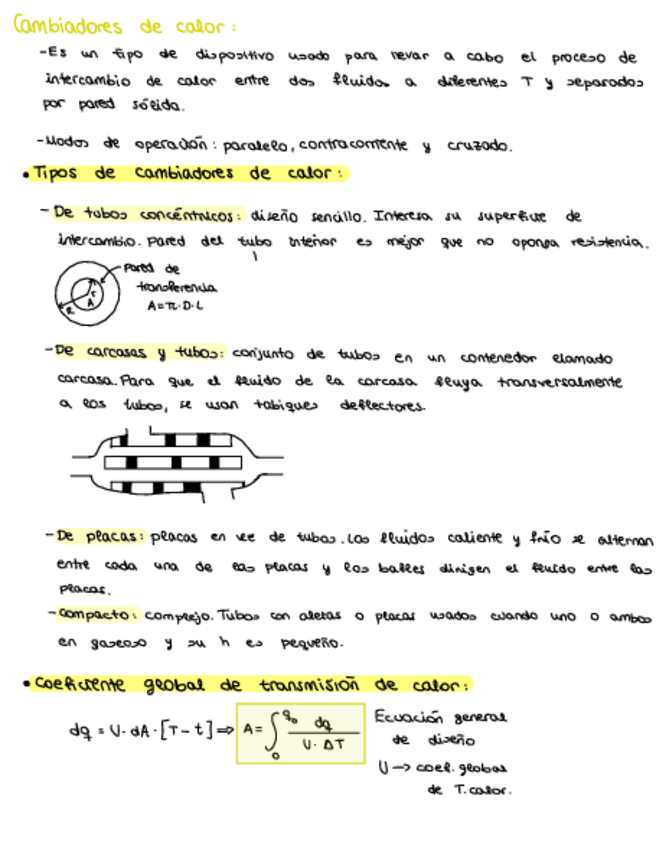 Cambiadores de calor:
-Es un tipo de dispositivo usado para levar a cabo el proceso de
intercambio de calor entre dos fluidos a diferentes T y separados
por pared sólida.
-Modos de operación: paralelo, contracorriente y cruzado.
• Tipos de cambiadores de calor:
- De tubos concéntricos: diseño sencillo. Interesa su superficie de
intercambio. Pared del tubo interior es mejor que no oponga resistencia.
Pared de
transferencia
A=π·D·L
r
A
R
-De carcasas y tubos: conjunto de tubos en un contenedor llamado
carcasa. Para que el fluido de la carcasa fluya transversalmente
a los tubos, se usan tabiques deflectores.
-De placas: placas en vez de tubos. Los fluidos caliente y frío se alternan
entre cada una de las placas y los bafles dirigen el fluido entre las
placas.
-Compacto: complejo. Tubos con aletas o placas usados cuando uno o ambos
en gaseoso y su h es pequeño.
• Coeficiente global de transmisión de calor:
dq = U·dA·[T-t] ⇒ A = ∫₀^q₀ dq / U·ΔT
Ecuación general
de diseño
U → coef. global
de T. calor.